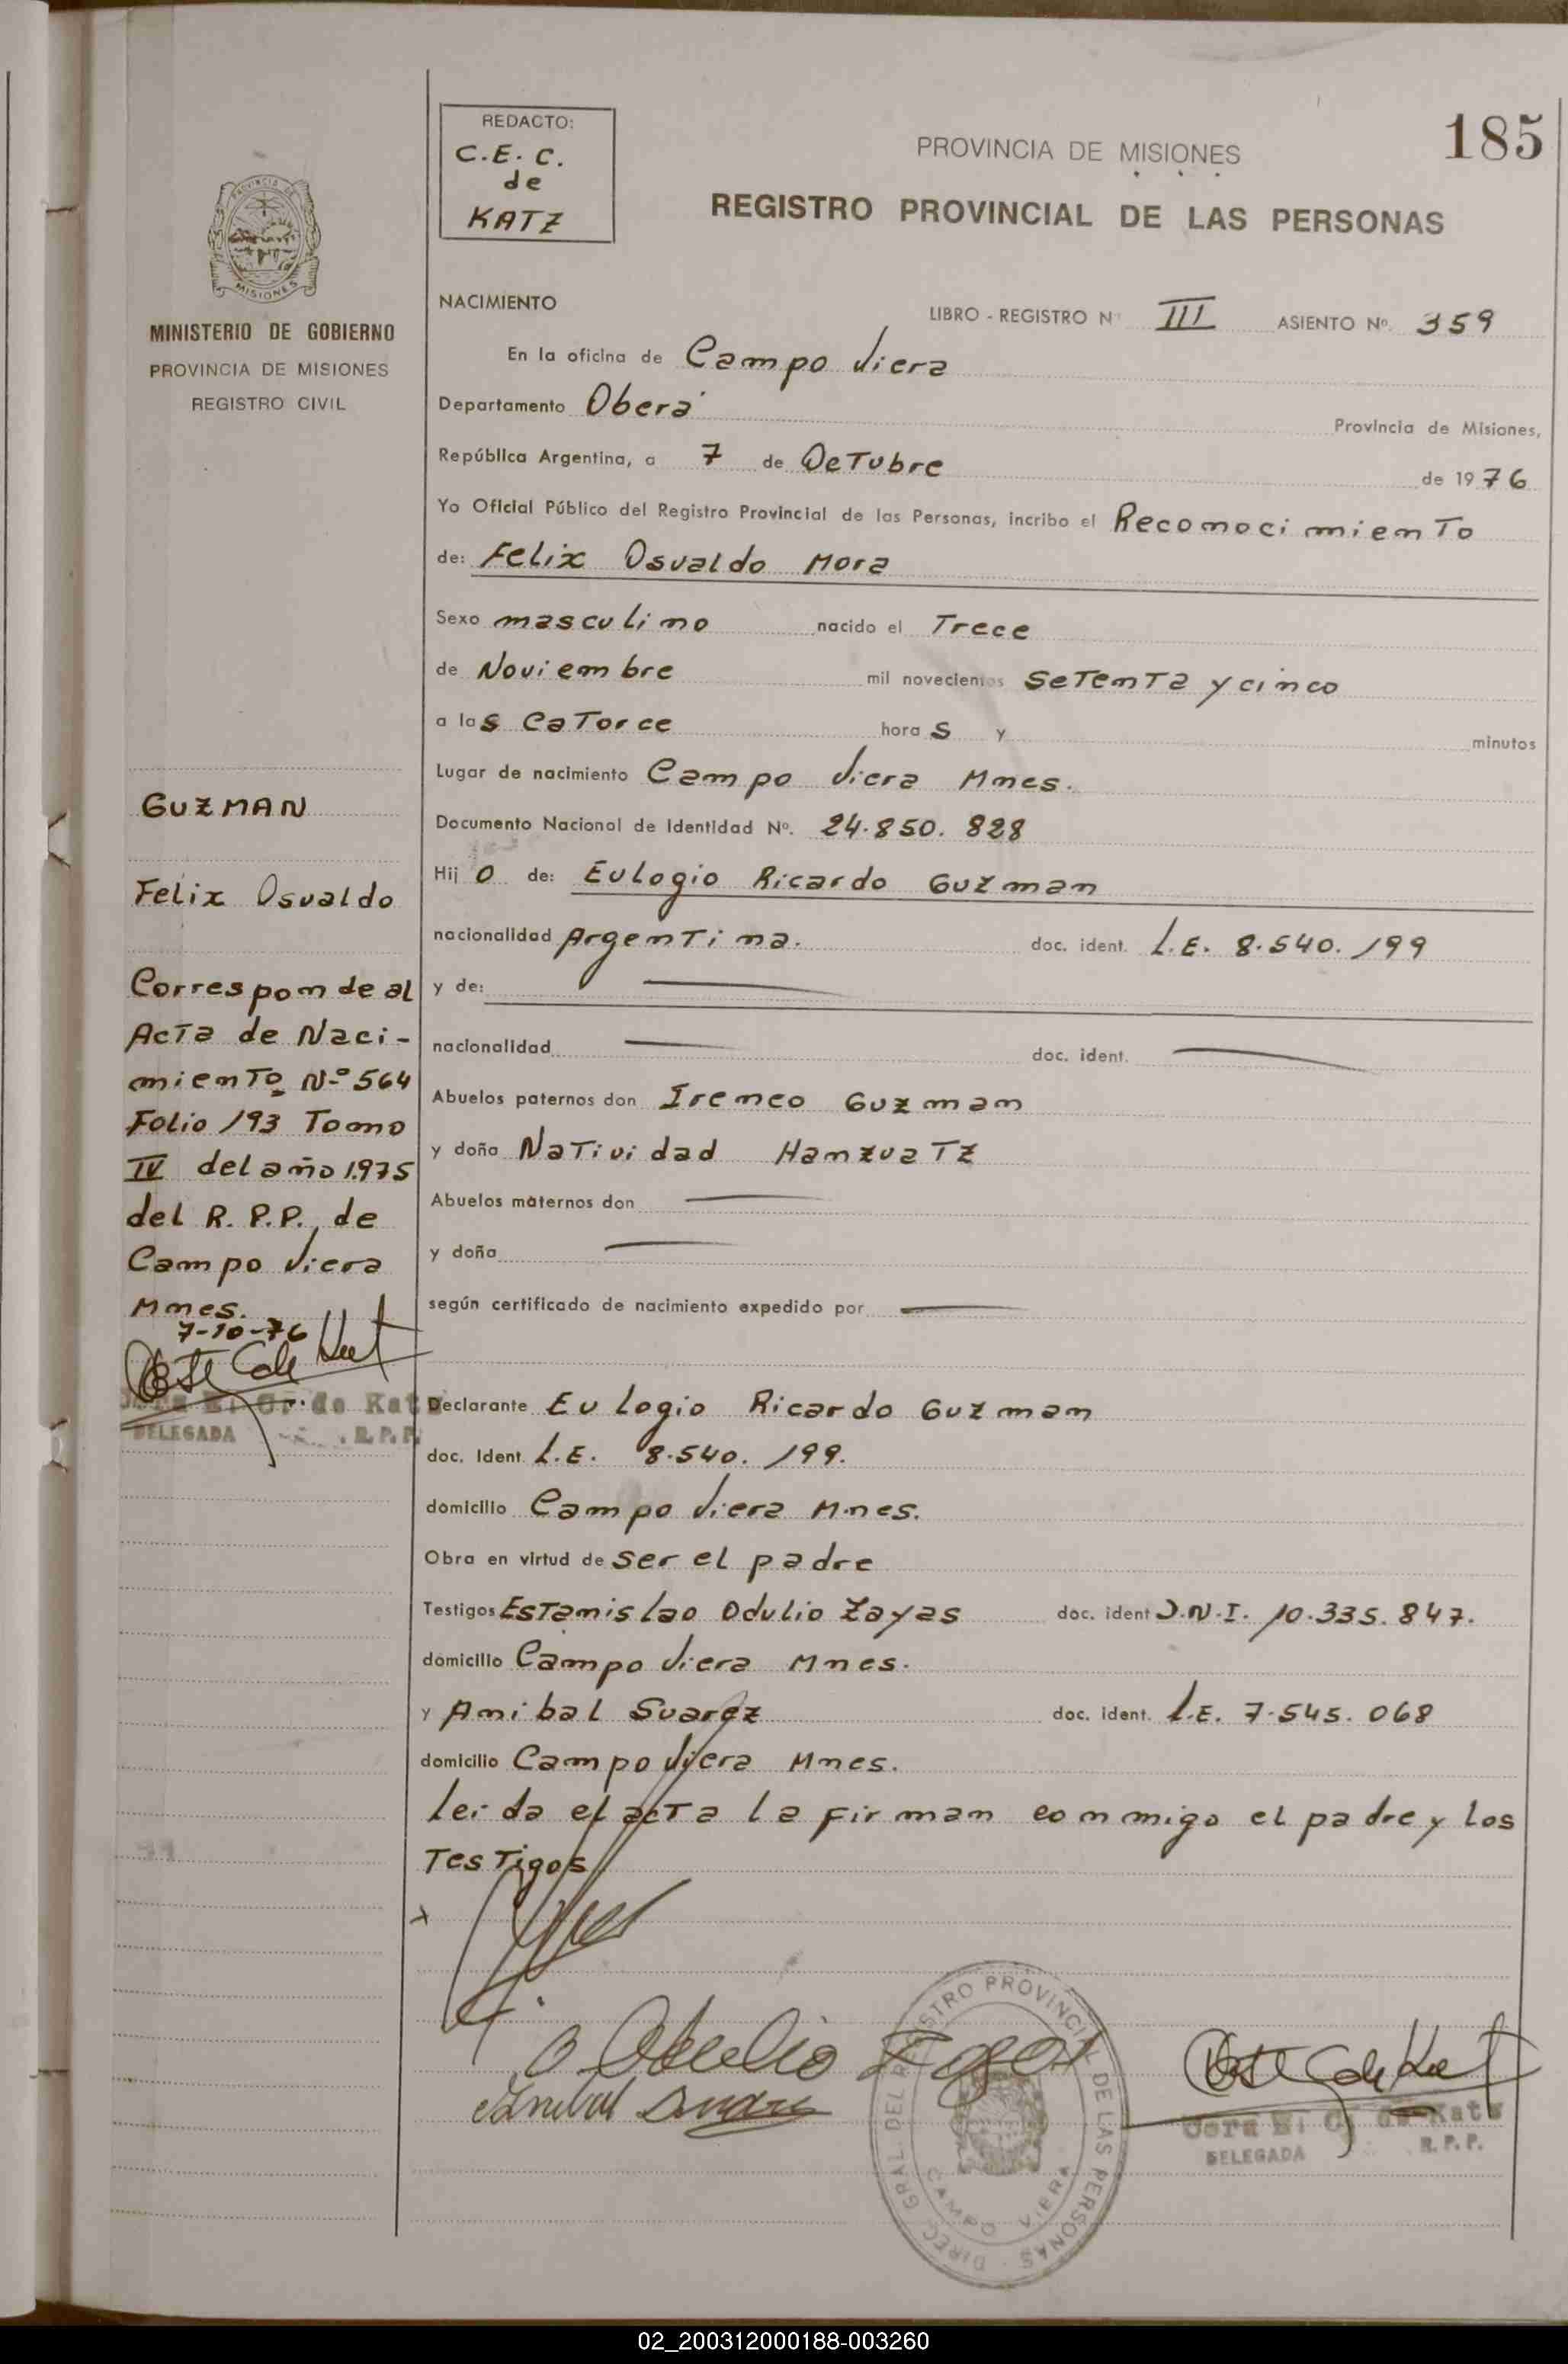 185
REDACTO:
C.E.C.
de
KATZ
PROVINCIA DE MISIONES
REGISTRO PROVINCIAL DE LAS PERSONAS
PROVINCIA DE
MISIONES
MINISTERIO DE GOBIERNO
PROVINCIA DE MISIONES
REGISTRO CIVIL
NACIMIENTO
LIBRO - REGISTRO Nº III ASIENTO Nº. 359
En la oficina de Campo Viera
Departamento Oberá Provincia de Misiones,
República Argentina, a 7 de OcTubre de 1976
Yo Oficial Público del Registro Provincial de las Personas, incribo el ReconocimienTo
de: Felix Osvaldo Mora
Sexo masculino nacido el Trece
de Noviembre mil novecientos seTenTa y cinco
a las CaTorce horas y minutos
Lugar de nacimiento Campo Viera Mnes.
Documento Nacional de Identidad Nº. 24.850.828
Hijo de: Eulogio Ricardo Guzman
nacionalidad ArgenTina. doc. ident. L.E. 8.540.199
y de:
nacionalidad doc. ident.
Abuelos paternos don Ireneo Guzman
y doña NaTividad HanzvaTz
Abuelos maternos don
y doña
según certificado de nacimiento expedido por
Declarante Eulogio Ricardo Guzman
doc. Ident. L.E. 8.540.199.
domicilio Campo Viera Mnes.
Obra en virtud de ser el padre
Testigos EsTanislao Odulio Zayas doc. ident D.N.I. 10.335.847.
domicilio Campo Viera Mnes.
y Anibal Suarez doc. ident. L.E. 7.545.068
domicilio Campo Viera Mnes.
leida el acTa la firman conmigo el padre y los
TesTigos
GUZMAN
Felix Osvaldo
Corresponde al
AcTa de Naci-
mienTo Nº 564
Folio 193 Tomo
IV del año 1975
del R.P.P. de
Campo Viera
Mnes.
7-10-76
C. de Katz
DELEGADA R.P.P.
O Odulio Zayas
Anibal Suarez
DIREC. GRAL. DEL REGISTRO PROVINCIAL DE LAS PERSONAS
CAMPO VIERA
C. de Katz
DELEGADA R.P.P.
02_200312000188-003260